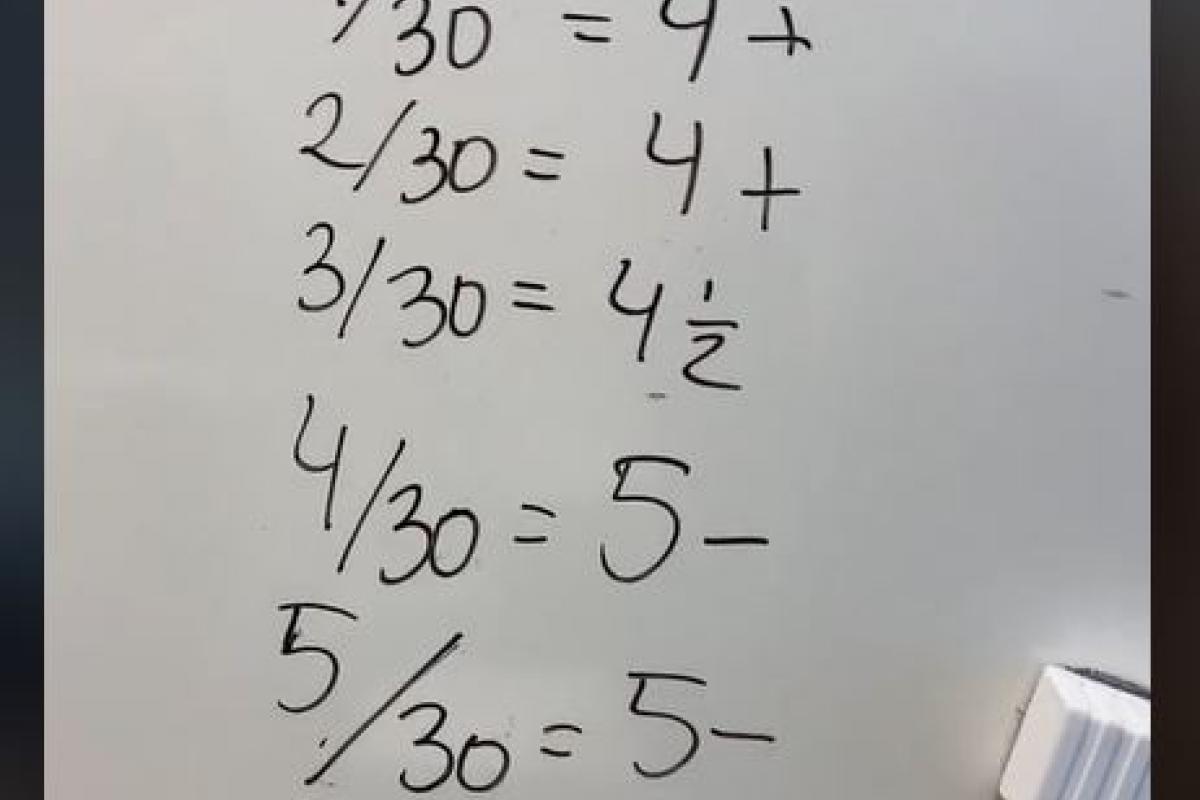 /30 = 4+
2/30 = 4+
3/30 = 4 1/2
4/30 = 5-
5/30 = 5-